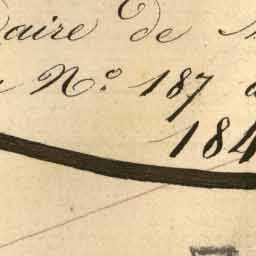 aire de
N.º 187
184